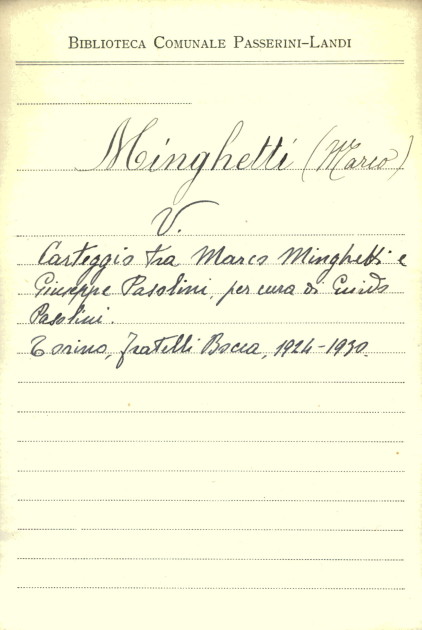 BIBLIOTECA COMUNALE PASSERINI-LANDI
Minghetti (Marco)
V.
Carteggio tra Marco Minghetti e
Giuseppe Pasolini, per cura di Guido
Pasolini.
Torino, fratelli Bocca, 1924-1930.